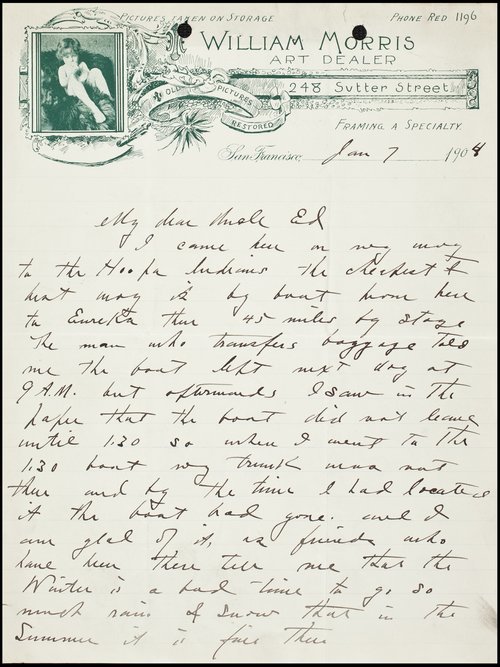 PICTURES TAKEN ON STORAGE
PHONE RED 1196
WILLIAM MORRIS
ART DEALER
OLD PICTURES RESTORED
248 Sutter Street
FRAMING A SPECIALTY.
San Francisco, Jan 7 1908
My dear Uncle Ed
I came here on my way
to the Hoopa Indians the cheapest &
best way is by boat from here
to Eureka then 45 miles by stage
The man who transfers baggage told
me the boat left next day at
9 A.M. but afterwards I saw in the
paper that the boat did not leave
until 1:30 so when I went to the
1:30 boat my trunk was not
there and by the time I had located
it the boat had gone. and I
am glad of it, as friends who
have been there tell me that the
Winter is a bad time to go so
much rain & snow that in the
Summer it is fine there